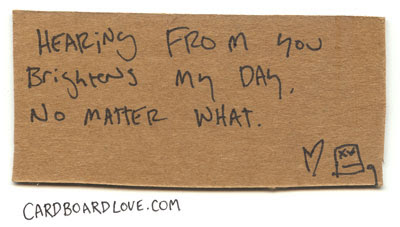 HEARING FROM YOU
BrigHtENS MY DAY,
NO MATTER WHAT.
CARDBOARDLOVE.COM